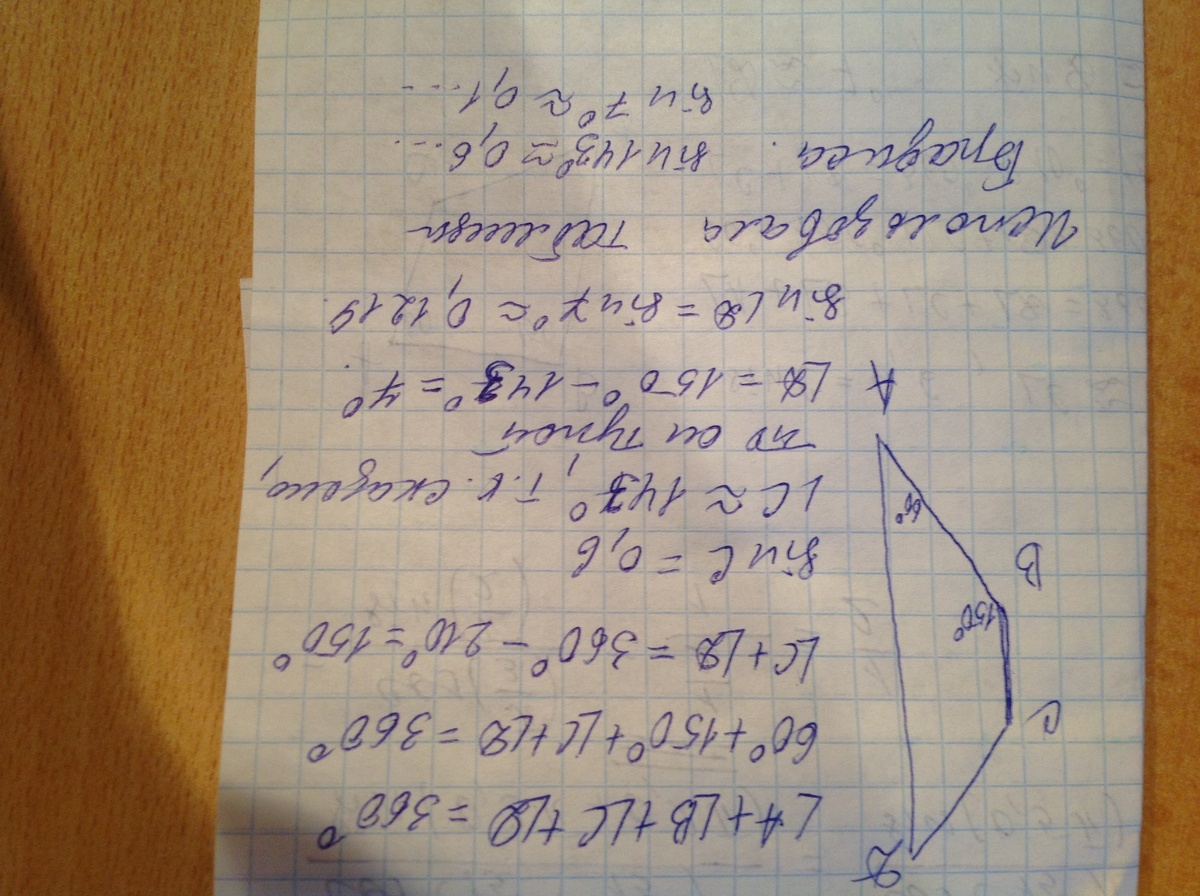 ∠A+∠B+∠C+∠D=360°
60°+150°+∠C+∠D=360°
∠C+∠D=360°-210°=150°
sin C=0,6
∠C≈143°, т.к. сказано,
что он тупой
∠D=150°-143°=7°
sin∠D=sin7°≈0,1219.
Использовала таблицы
Брадиса. sin143°≈0,6...
sin7°≈0,1...
D
C
B
150°
60°
A